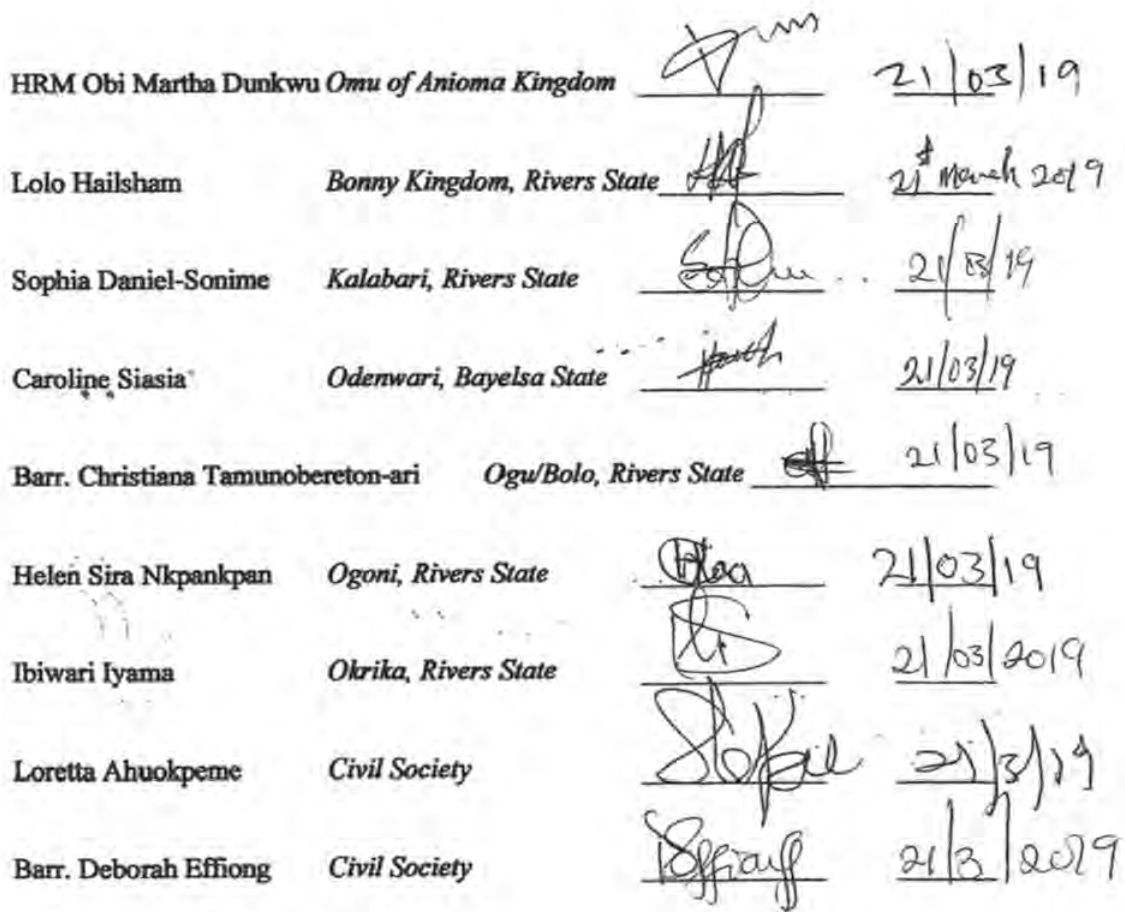 HRM Obi Martha Dunkwu Omu of Anioma Kingdom 21/03/19
Lolo Hailsham Bonny Kingdom, Rivers State 21st March 2019
Sophia Daniel-Sonime Kalabari, Rivers State 21/03/19
Caroline Siasia Odenwari, Bayelsa State 21/03/19
Barr. Christiana Tamunobereton-ari Ogu/Bolo, Rivers State 21/03/19
Helen Sira Nkpankpan Ogoni, Rivers State 21/03/19
Ibiwari Iyama Okrika, Rivers State 21/03/2019
Loretta Ahuokpeme Civil Society 21/3/19
Barr. Deborah Effiong Civil Society 21/3/2019